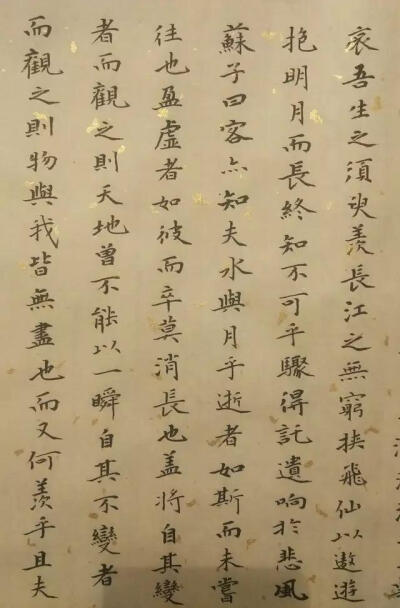 哀吾生之須臾羨長江之無窮挾飛仙以遨遊
抱明月而長終知不可乎驟得託遺响於悲風
蘇子曰客亦知夫水與月乎逝者如斯而未嘗
往也盈虛者如彼而卒莫消長也盖將自其變
者而觀之則天地曾不能以一瞬自其不變者
而觀之則物與我皆無盡也而又何羨乎且夫